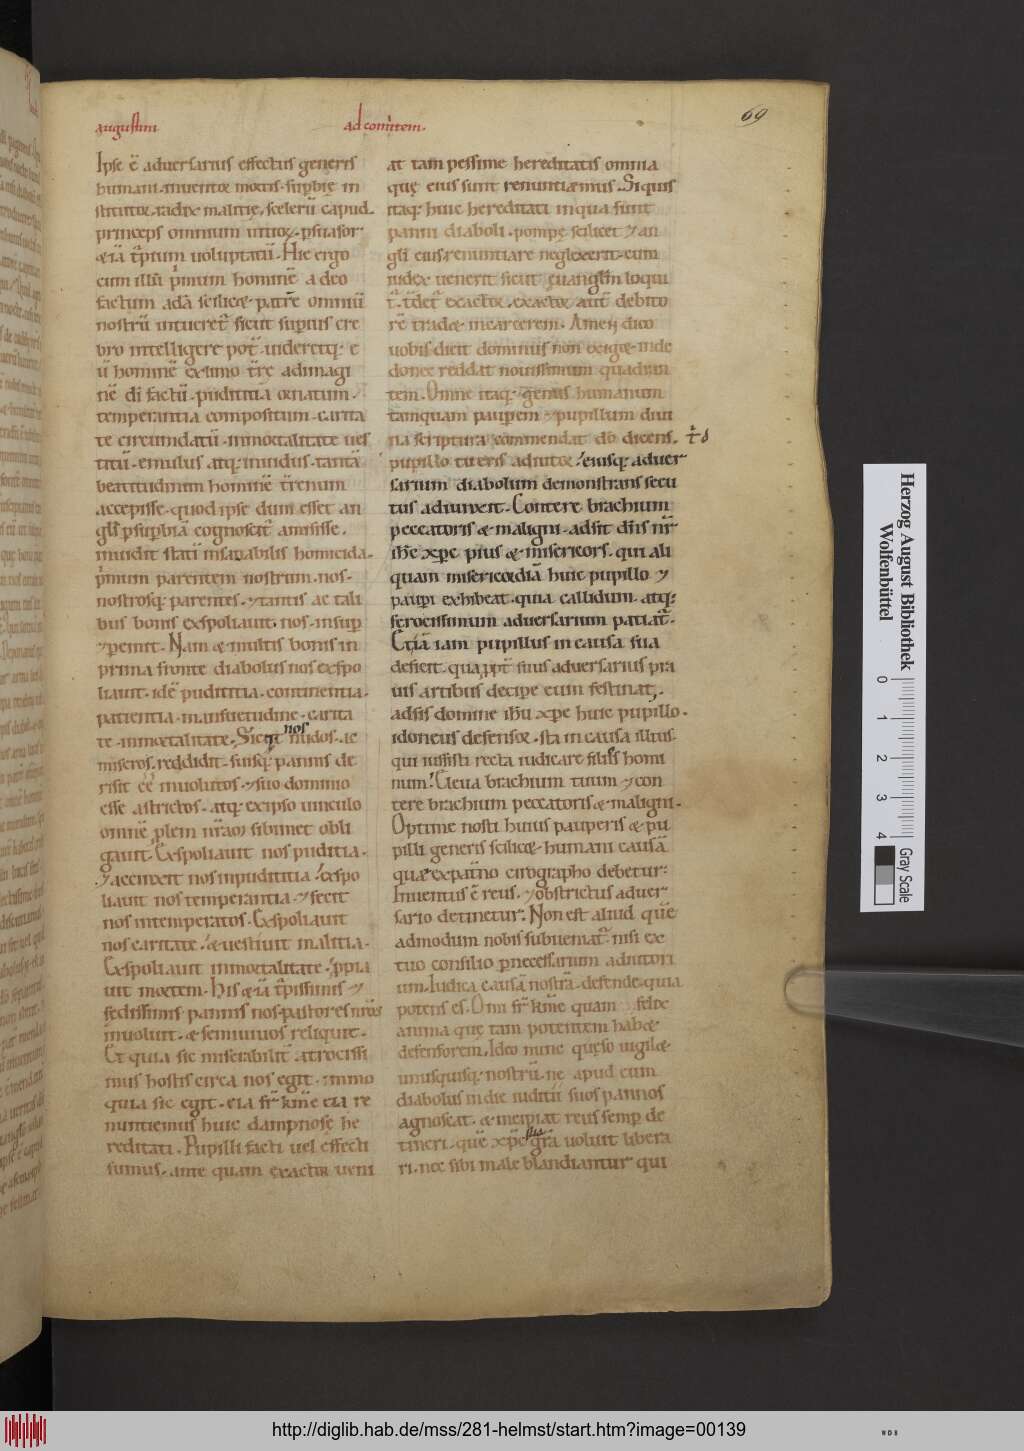 augustini ad comitem.
69
Ipse ē aduersarius effectus generis
humani. inuentor mortis. supbię in
stitutor. radix malitię, scelerū capud.
princeps omnium uitioꝝ. psuasor
&iā t̄pium uoluptatū. Hic ergo
cum illū pͥmum hominē a deo
factum adā scilic& patrē omniū
nostrū intueret̄ sicut supius cre
bro intelligere pot̄. uideretq; e
ū hominē ex limo t̄re ad imagi
nē dī factū. pudititia ornatum.
temperantia compositum. carita
te circumdatū. inmortalitate ues
titū. emulus atq; inuidus. tantā
beatitudinum hominē t̄renum
accepisse. quod ipse dum esset an
gl̄s p supbiā cognoscit̄ amisisse.
inuidit statī insaciabilis homicida.
pͥmum parentem nostrum. nos.
nostrosq; parentes. ⁊ tantis ac tali
bus bonis exspoliauit. nos. insup
⁊ pemit. Nam & multis bonis in
prima fronte diabolus nos exspo
liauit. idē pudititia. continentia.
patientia. mansuetudine. carita
te. inmortalitate. Sicqꝫ nos nudos. ac
miseros. reddidit. suisq; pannis de
risit ēē inuolutos. ⁊ suo dominio
esse astrictos. atq; ex ipso uinculo
omnē plem nr̄aꝝ sibimet obli
gauit. Exspoliauit nos puditia.
⁊ accinxit nos inpudititia. Exspo
liauit nos temperantia. ⁊ fecit
nos intemperatos. Exspoliauit
nos caritate. & uestiuit malitia.
Exspoliauit inmortalitate. ppia
uit mortem. His &iā t̄pissimis ⁊
fedissimis pannis nos. pastores nr̄os
inuoluit. & semiuiuos reliquit.
Et quia sic miserabilit̄. atrocissi
mus hostis circa nos egit. immo
quia sic egit. eia fr̄ kme eia re
nuntiemus huic dampnosę he
reditati. Pupilli facti uel effecti
sumus. ante quam exactor ueni
at tam pessime hereditatis omnia
quę eius sunt renuntiemus. Si quis
itaq; huic hereditati in qua sunt
panni diaboli. pompę scilicet ⁊ an
gli eius renuntiare neglexerit. cum
iudex uenerit sicut euangl̄m loqui
t̄. t̄det̄ exactori. exactor aut̄ debito
rē tradet in carcerem. Amen dico
uobis dicit dominus non exiget inde
donec reddat nouissimum quadran
tem. Omne itaq; genus humanum
tamquam pauperem ⁊ pupillum diui
na scriptura commendat dō dicens. t̄ d̄
pupillo tu eris adiutor. eiusq; aduer
sarium diabolum demonstrans secu
tus adiunxit. Contere brachium
peccatoris & maligni. adsit dn̄s nr̄
ih̄c xp̄c pius & misericors. qui ali
quam misericordiā huic pupillo ⁊
paupi exhibeat. quia callidum. atq;
ferocissimum aduersarium patiat̄.
Etiā iam pupillus in causa sua
deficit. qua ppt̄ suus aduersarius pra
uis artibus decipe eum festinat.
adsis domine ih̄u xp̄c huic pupillo.
idoneus defensor. sta in causa illius.
qui iussisti recta iudicare filiis homi
num. Eleua brachium tuum ⁊ con
tere brachium peccatoris & maligni.
Optime nosti huius pauperis & pu
pilli generis scilic& humani causā
quæ ex patn̄o cirographo debetur.
Inuentus ē reus. ⁊ obstrictus aduer
sario detinetur. Non est aliud quē
admodum nobis subueniat̄. nisi ex
tuo consilio p necessarium adiutori
um. Iudica causā nostrā. defende. quia
potens es. O mi fr̄ kme quam felix
anima quę tam potentem hab&
defensorem. Ideo nunc quęso uigil&
unusquisq; nostrū. ne apud eum
diabolus in die iuditii suos pannos
agnoscat. & incipiat reus semp de
tineri. quē xp̄c sua grā uoluit libera
ri. nec sibi male blandiantur qui
Herzog August Bibliothek
Wolfenbüttel
0 1 2 3 4
Gray Scale
http://diglib.hab.de/mss/281-helmst/start.htm?image=00139